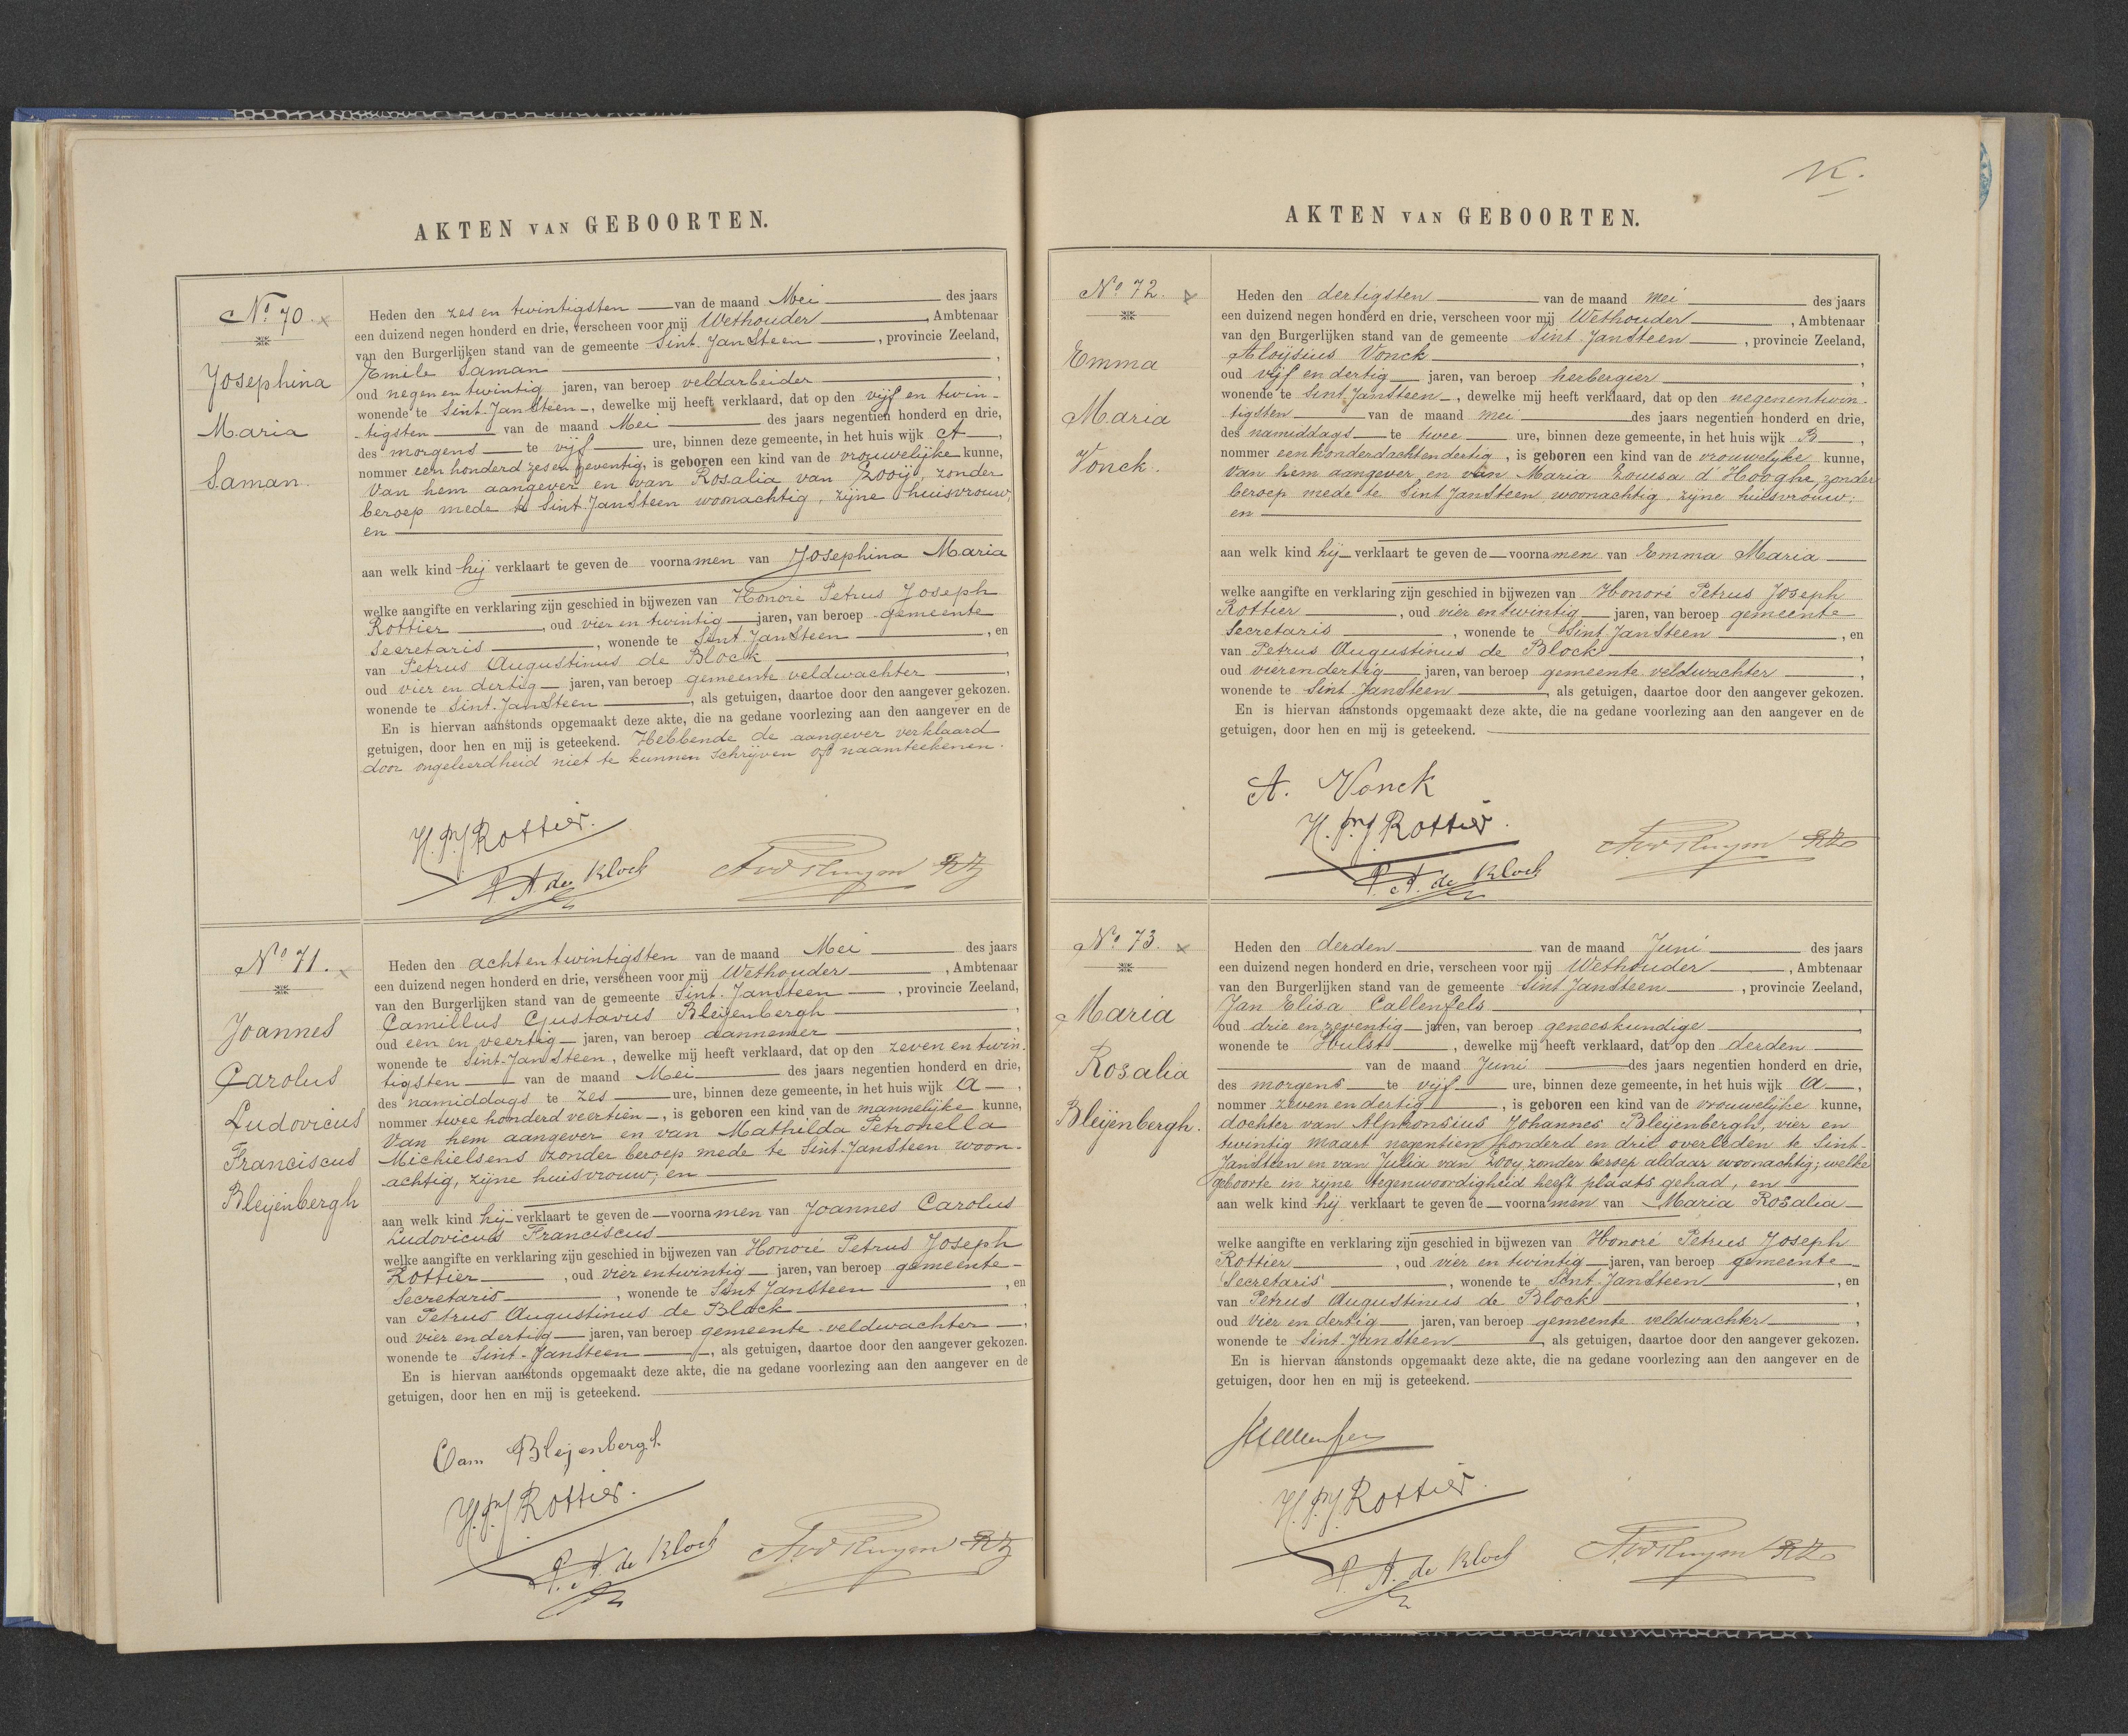 AKTEN VAN GEBOORTEN.
No. 70.
Josephina
Maria
Saman.
Heden den zes en twintigsten van de maand Mei des jaars
een duizend negen honderd en drie, verscheen voor mij Wethouder, Ambtenaar
van den Burgerlijken stand van de gemeente Sint. JanSteen, provincie Zeeland,
Emile Saman,
oud negen en twintig jaren, van beroep veldarbeider,
wonende te Sint-JanSteen, dewelke mij heeft verklaard, dat op den vijf en twin-
tigsten van de maand Mei des jaars negentien honderd en drie,
des morgens te vijf ure, binnen deze gemeente, in het huis wijk A,
nommer een honderd zes en zeventig, is geboren een kind van de vrouwelijke kunne,
Van hem aangever en van Rosalia van Looij, zonder
beroep mede te Sint. JanSteen woonachtig, zijne huisvrouw,
en
aan welk kind hij verklaart te geven de voornamen van Josephina Maria
welke aangifte en verklaring zijn geschied in bijwezen van Honoré Petrus Joseph
Rottier, oud vier en twintig jaren, van beroep gemeente
Secretaris, wonende te Sint. JanSteen, en
van Petrus Augustinus de Block,
oud vier en dertig jaren, van beroep gemeente veldwachter,
wonende te Sint. JanSteen, als getuigen, daartoe door den aangever gekozen.
En is hiervan aanstonds opgemaakt deze akte, die na gedane voorlezing aan den aangever en de
getuigen, door hen en mij is geteekend. Hebbende de aangever verklaard
door ongeleerdheid niet te kunnen schrijven of naamteekenen.
H. P. J Rottier.
P. A. de Block
No 71.
Joannes
Carolus
Ludovicus
Franciscus
Bleijenbergh
Heden den achtentwintigsten van de maand Mei des jaars
een duizend negen honderd en drie, verscheen voor mij Wethouder, Ambtenaar
van den Burgerlijken stand van de gemeente Sint. JanSteen, provincie Zeeland,
Camillus Gustavus Bleijenbergh,
oud een en veertig jaren, van beroep aannemer,
wonende te Sint-JanSteen, dewelke mij heeft verklaard, dat op den zeven en twin.
tigsten van de maand Mei des jaars negentien honderd en drie,
des namiddags te zes ure, binnen deze gemeente, in het huis wijk A,
nommer twee honderd veertien, is geboren een kind van de mannelijke kunne,
Van hem aangever en van Mathilda Petronella
Michielsens zonder beroep mede te Sint-JanSteen woon-
achtig, zijne huisvrouw; en
aan welk kind hij verklaart te geven de voornamen van Joannes Carolus
Ludovicus Franciscus
welke aangifte en verklaring zijn geschied in bijwezen van Honoré Petrus Joseph
Rottier, oud vier entwintig jaren, van beroep gemeente-
Secretaris, wonende te Sint JanSteen, en
van Petrus Augustinus de Block,
oud vier endertig jaren, van beroep gemeente-veldwachter,
wonende te Sint-JanSteen, als getuigen, daartoe door den aangever gekozen.
En is hiervan aanstonds opgemaakt deze akte, die na gedane voorlezing aan den aangever en de
getuigen, door hen en mij is geteekend.
Cam Bleijenbergh
H. P. J Rottier.
P. A. de Block
AKTEN VAN GEBOORTEN.
No 72.
Emma
Maria
Vonck.
Heden den dertigsten van de maand mei des jaars
een duizend negen honderd en drie, verscheen voor mij Wethouder, Ambtenaar
van den Burgerlijken stand van de gemeente Sint JanSteen, provincie Zeeland,
Aloijsius Vonck,
oud vijf en dertig jaren, van beroep herbergier,
wonende te Sint JanSteen, dewelke mij heeft verklaard, dat op den negenentwin.
tigsten van de maand mei des jaars negentien honderd en drie,
des namiddags te twee ure, binnen deze gemeente, in het huis wijk B,
nommer eenhonderdachtendertig, is geboren een kind van de vrouwelyke kunne,
Van hem aangever en van Maria Louisa d'Hooghe, zonder
beroep mede te Sint JanSteen woonachtig, zijne huisvrouw;
en
aan welk kind hij verklaart te geven de voornamen van Emma Maria
welke aangifte en verklaring zijn geschied in bijwezen van Honoré Petrus Joseph
Rottier, oud vier entwintig jaren, van beroep gemeente
Secretaris, wonende te Sint JanSteen, en
van Petrus Augustinus de Block,
oud vierendertig jaren, van beroep gemeente veldwachter,
wonende te Sint. JanSteen, als getuigen, daartoe door den aangever gekozen.
En is hiervan aanstonds opgemaakt deze akte, die na gedane voorlezing aan den aangever en de
getuigen, door hen en mij is geteekend.
A. Vonck
H. P. J Rottier.
P. A. de Block
No 73.
Maria
Rosalia
Bleijenbergh.
Heden den derden van de maand Juni des jaars
een duizend negen honderd en drie, verscheen voor mij Wethouder, Ambtenaar
van den Burgerlijken stand van de gemeente Sint JanSteen, provincie Zeeland,
Jan Elisa Callenfels,
oud drie en zeventig jaren, van beroep geneeskundige,
wonende te Hulst, dewelke mij heeft verklaard, dat op den derden
van de maand Juni des jaars negentien honderd en drie,
des morgens te vijf ure, binnen deze gemeente, in het huis wijk A,
nommer zeven en dertig, is geboren een kind van de vrouwelijke kunne,
dochter van Alphonsius Johannes Bleijenbergh, vier en
twintig Maart negentien honderd en drie overleden te Sint-
JanSteen en van Julia van Looy, zonder beroep aldaar woonachtig; welke
geboorte in zijne tegenwoordigheid heeft plaats gehad, en
aan welk kind hij verklaart te geven de voornamen van Maria Rosalia
welke aangifte en verklaring zijn geschied in bijwezen van Honoré Petrus Joseph
Rottier, oud vier en twintig jaren, van beroep gemeente
Secretaris, wonende te Sint. JanSteen, en
van Petrus Augustinus de Block,
oud vier en dertig jaren, van beroep gemeente veldwachter,
wonende te Sint. JanSteen, als getuigen, daartoe door den aangever gekozen.
En is hiervan aanstonds opgemaakt deze akte, die na gedane voorlezing aan den aangever en de
getuigen, door hen en mij is geteekend.
H. P. J Rottier.
P. A. de Block